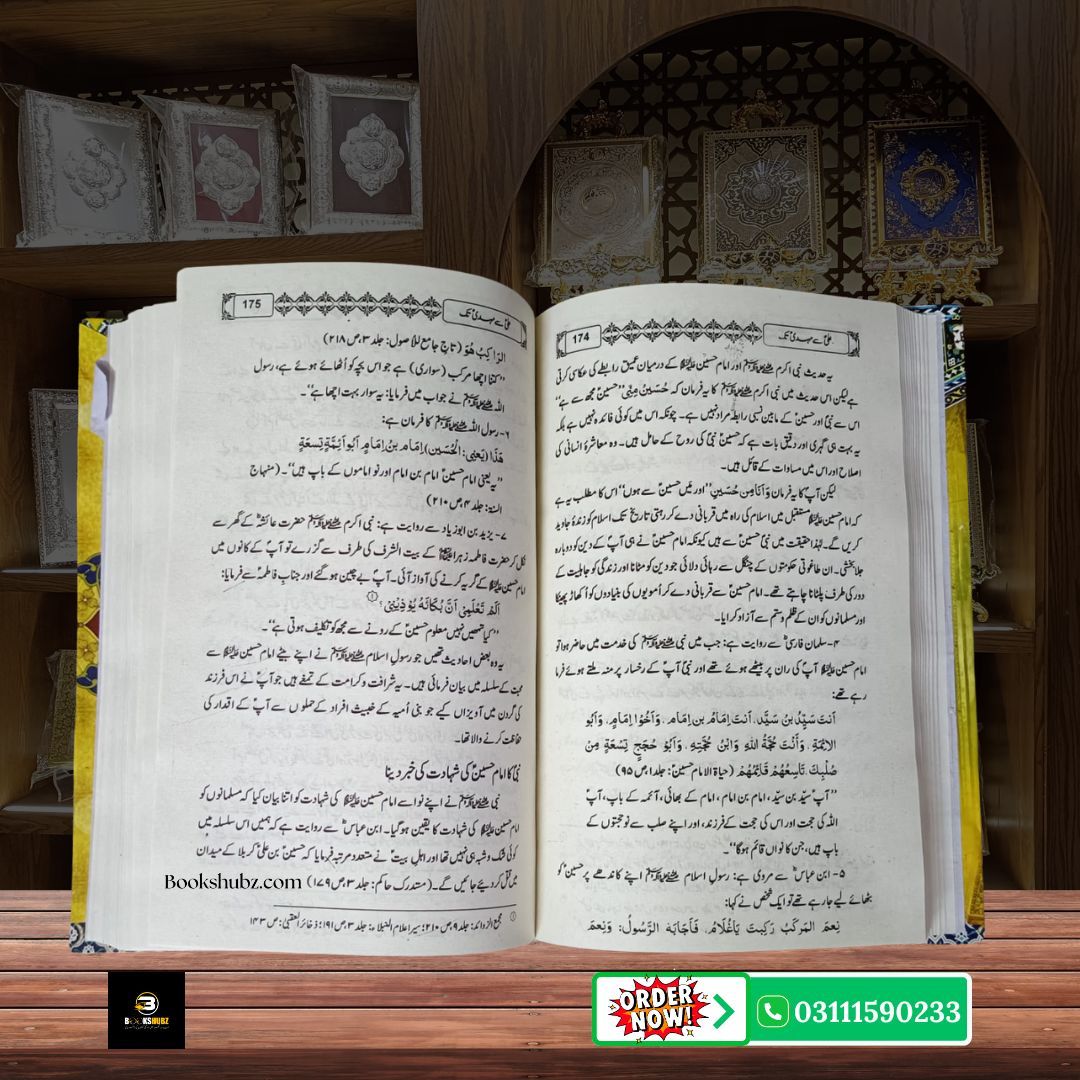 174
علیؑ سے مہدیؑ تک
یہ حدیث نبی اکرم ﷺ اور امام حسین علیہ السلام کے درمیان عمیق رابطے کی عکاسی کرتی
ہے لیکن اس حدیث میں نبی اکرم ﷺ کا یہ فرمان کہ حُسَیْنٌ مِنِّی ”حسینؑ مجھ سے ہے“
اس سے نبیؐ اور حسینؑ کے مابین نسبی رابطہ مراد نہیں ہے۔ چونکہ اس میں کوئی فائدہ نہیں ہے بلکہ
یہ بہت ہی گہری اور دقیق بات ہے کہ حسینؑ نبیؐ کی روح کے حامل ہیں۔ وہ معاشرۂ انسانی کی
اصلاح اور اس میں مساوات کے قائل ہیں۔
لیکن آپؐ کا یہ فرمان وَأَنَامِن حُسَینٍ ”اور میں حسینؑ سے ہوں“ اس کا مطلب یہ ہے
کہ امام حسین علیہ السلام مستقبل میں اسلام کی راہ میں قربانی دے کر رہتی تاریخ تک اسلام کو زندۂ جاوید
کریں گے۔ لہٰذا حقیقت میں نبیؐ حسینؑ سے ہیں کیونکہ امام حسینؑ نے ہی آپؐ کے دین کو دوبارہ
جلا بخشی۔ ان طاغوتی حکومتوں کے چنگل سے رہائی دلائی جو دین کو مٹانا اور زندگی کو جاہلیت کے
دور کی طرف پلٹانا چاہتے تھے۔ امام حسینؑ سے قربانی دے کر اُمویوں کی بنیادوں کو اُکھاڑ پھینکا
اور مسلمانوں کو ان کے ظلم و ستم سے آزاد کرایا۔
۴۔ سلمان فارسیؓ سے روایت ہے: جب میں نبی ﷺ کی خدمت میں حاضر ہوا تو
امام حسین علیہ السلام آپؐ کی ران پر بیٹھے ہوئے تھے اور نبیؐ آپؑ کے رخسار پر منہ ملتے ہوئے فرما
رہے تھے:
أَنتَ سَیِّدٌ بنُ سَیَّدٍ، أَنتَ إِمَامٌ بن إِمَامٍ، وَأَخُوا إِمَامٍ، وَأَبُو
الائمَّةِ، وَأَنْتَ حُجَّةُ اللهِ وَابْنُ حُجَّتِهِ، وَأَبُو حُجَجٍ تِسْعَةٍ مِنْ
صُلْبِكَ، تَاسِعُهُمْ قَائِمُهُمْ (حیاة الامام حسینؑ: جلد ۱، ص ۹۵)
”آپؑ سیّد بن سیّد، امام بن امام، امام کے بھائی، آئمہ کے باپ، آپؑ
اللہ کی حجت اور اس کی حجت کے فرزند، اور اپنے صلب سے نو حجتوں کے
باپ ہیں، جن کا نواں قائم ہوگا“۔
۵۔ ابن عباسؓ سے مروی ہے: رسولِ اسلام ﷺ اپنے کاندھے پر حسینؑ کو
بٹھائے لیے جا رہے تھے تو ایک شخص نے کہا:
نِعمَ المَرکَبُ رَکِبتَ یَاغُلَامُ، فَأَجَابَهُ الرَّسُولُ: وَنِعمَ
175
علیؑ سے مہدیؑ تک
الرَاکِبُ هُوَ (تاج جامع للأصول: جلد ۳، ص ۲۱۸)
”کتنا اچھا مرکب (سواری) ہے جو اس بچے کو اُٹھائے ہوئے ہے، رسول
اللہ ﷺ نے جواب میں فرمایا: یہ سوار بہت اچھا ہے“۔
۶۔ رسول اللہ ﷺ کا فرمان ہے:
هَذَا (یَعنِی: الحُسَین) إِمَام بن إِمَامٍ أَبُو أَئِمَّةٍ تِسعَةٍ
”یہ یعنی امام حسینؑ امام بن امام اور نو اماموں کے باپ ہیں“۔ (منہاج
السنۃ: جلد ۴، ص ۲۱۰)
۷۔ یزید بن ابوزیاد سے روایت ہے: نبی اکرم ﷺ حضرت عائشہؓ کے گھر سے
نکل کر حضرت فاطمہ زہرا علیہا السلام کے بیت الشرف کی طرف سے گزرے تو آپؐ کے کانوں میں
امام حسین علیہ السلام کے گریہ کرنے کی آواز آئی۔ آپؐ بے چین ہوگئے اور جنابِ فاطمہؑ سے فرمایا:
أَلَمْ تَعْلَمِی أَنَّ بُکَائَهُ یُؤذِینِی؟ ①
”کیا تمھیں نہیں معلوم حسینؑ کے رونے سے مجھ کو تکلیف ہوتی ہے“۔
یہ وہ بعض احادیث تھیں جو رسولِ اسلام ﷺ نے اپنے بیٹے امام حسین علیہ السلام سے
محبت کے سلسلہ میں بیان فرمائی ہیں۔ یہ شرافت و کرامت کے تمغے ہیں جو آپؐ نے اس فرزند
کی گردن میں آویزاں کیے جو بنی اُمیہ کے خبیث افراد کے حملوں سے آپؐ کے اقدار کی
حفاظت کرنے والا تھا۔
نبیؐ کا امام حسینؑ کی شہادت کی خبر دینا
نبی ﷺ نے اپنے نواسے امام حسین علیہ السلام کی شہادت کو اتنا بیان کیا کہ مسلمانوں کو
امام حسین علیہ السلام کی شہادت کا یقین ہوگیا۔ ابن عباسؓ سے روایت ہے کہ ہمیں اس سلسلہ میں
کوئی شک و شبہ ہی نہیں تھا اور اہلِ بیتؑ نے متعدد مرتبہ فرمایا کہ حسینؑ بن علیؑ کربلا کے میدان
میں قتل کر دیئے جائیں گے۔ (مستدرک حاکم: جلد ۳، ص ۱۷۹)
Bookshubz.com
① مجمع الزوائد: جلد ۹، ص ۲۱۰؛ سیر اعلام النبلاء: جلد ۳، ص ۱۹۱؛ ذخائر العقبیٰ: ص ۱۴۳
BOOKSHUBZ
ORDER NOW!
03111590233